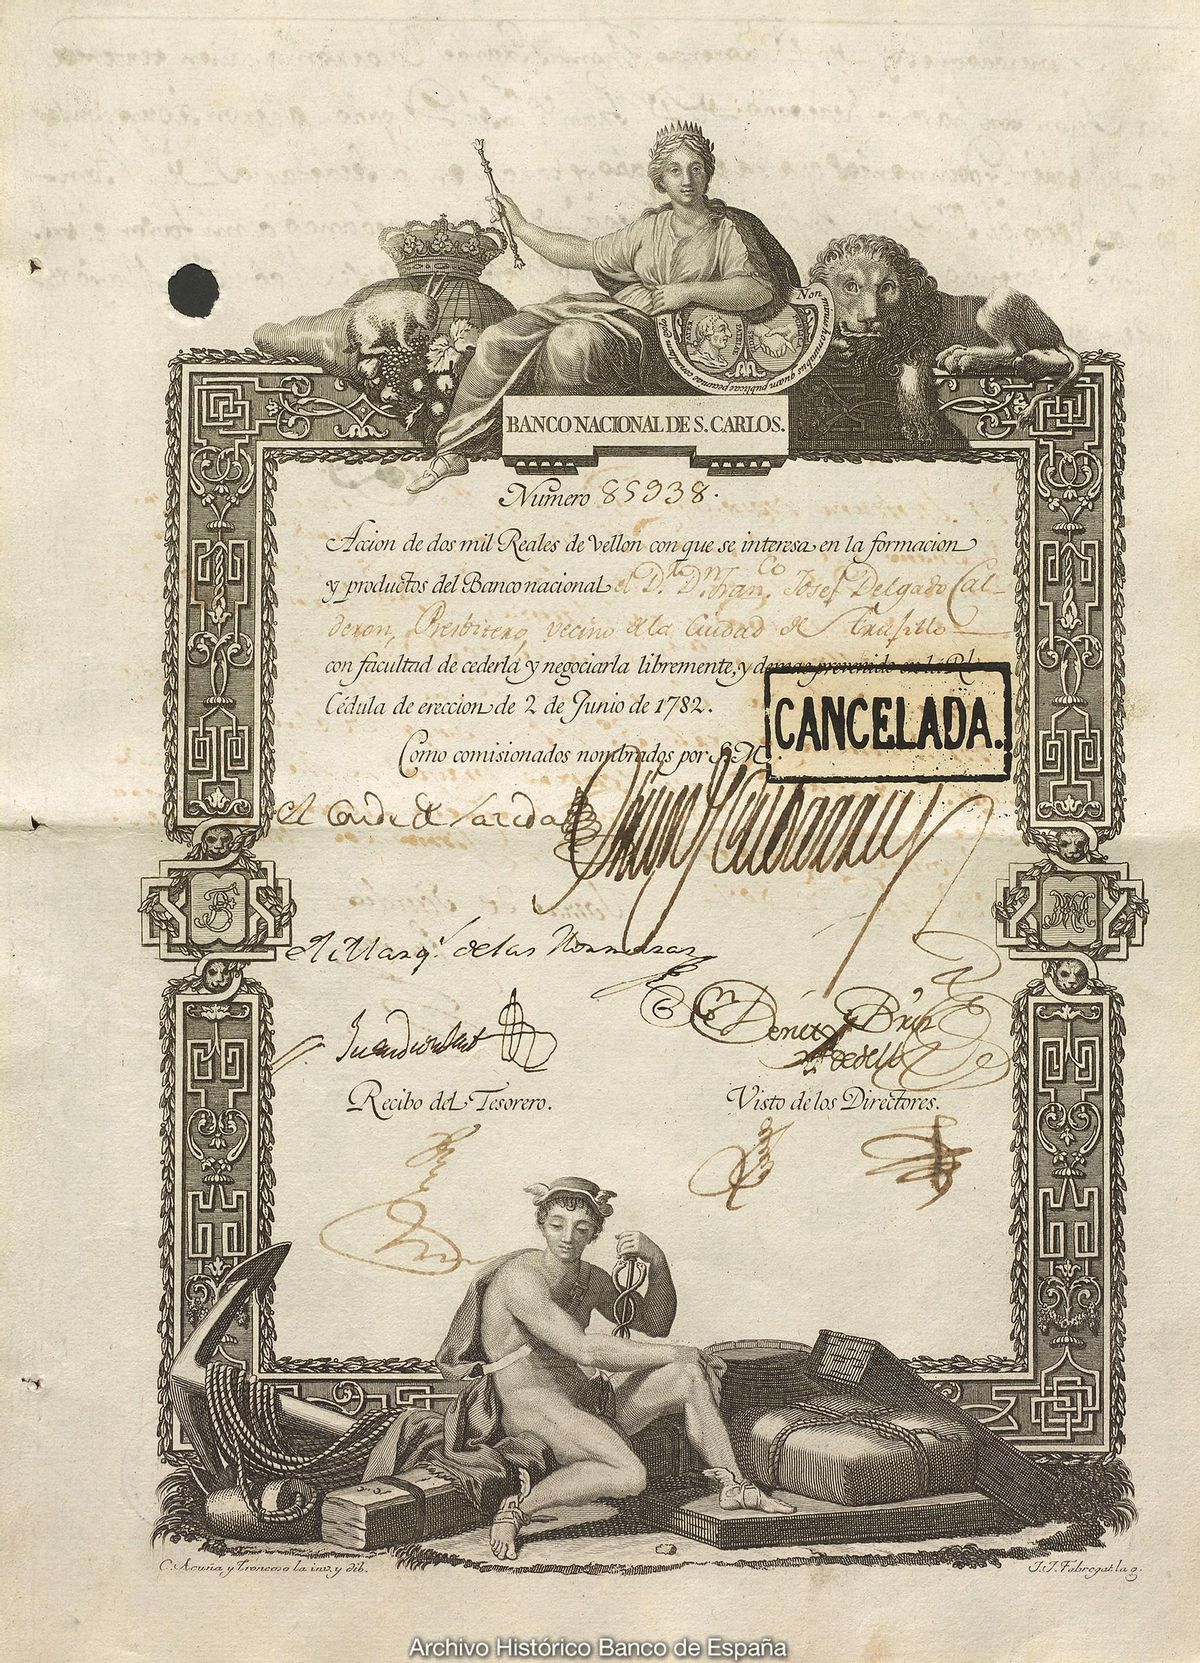 Non
BANCO NACIONAL DE S. CARLOS.
Numero 85938.
Accion de dos mil Reales de vellon con que se interesa en la formacion
y productos del Banco nacional el Dr. Dn. Franco. Josef Delgado Cal-
deron, Presbitero, vecino de la Ciudad de Trusillo
con facultad de cederla y negociarla libremente, y demas prevenido en la Rl.
Cédula de ereccion de 2 de Junio de 1782.
CANCELADA.
Como comisionados nombrados por S. M.
el Conde de
El Marqs. de las Hormazas
Recibo del Tesorero.
Visto de los Directores.
C. Acuña y Troncoso la inv. y dib.
J. J. Fabregat la g.
Archivo Histórico Banco de España